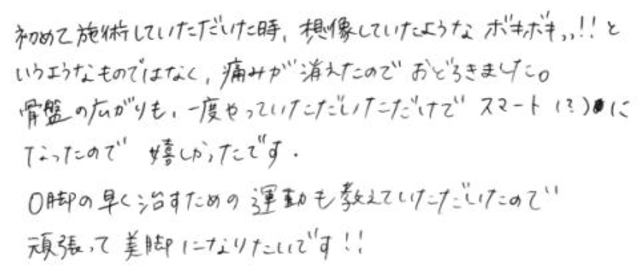 初めて施術していただいた時、想像していたような ボキボキッ!!と
いうようなものではなく、痛みが消えたので おどろきました。
骨盤の広がりも、一度やっていただいただけで スマート(?)に
なったので 嬉しかったです。
O脚の早く治すための運動も教えていただいたので
頑張って美脚になりたいです!!